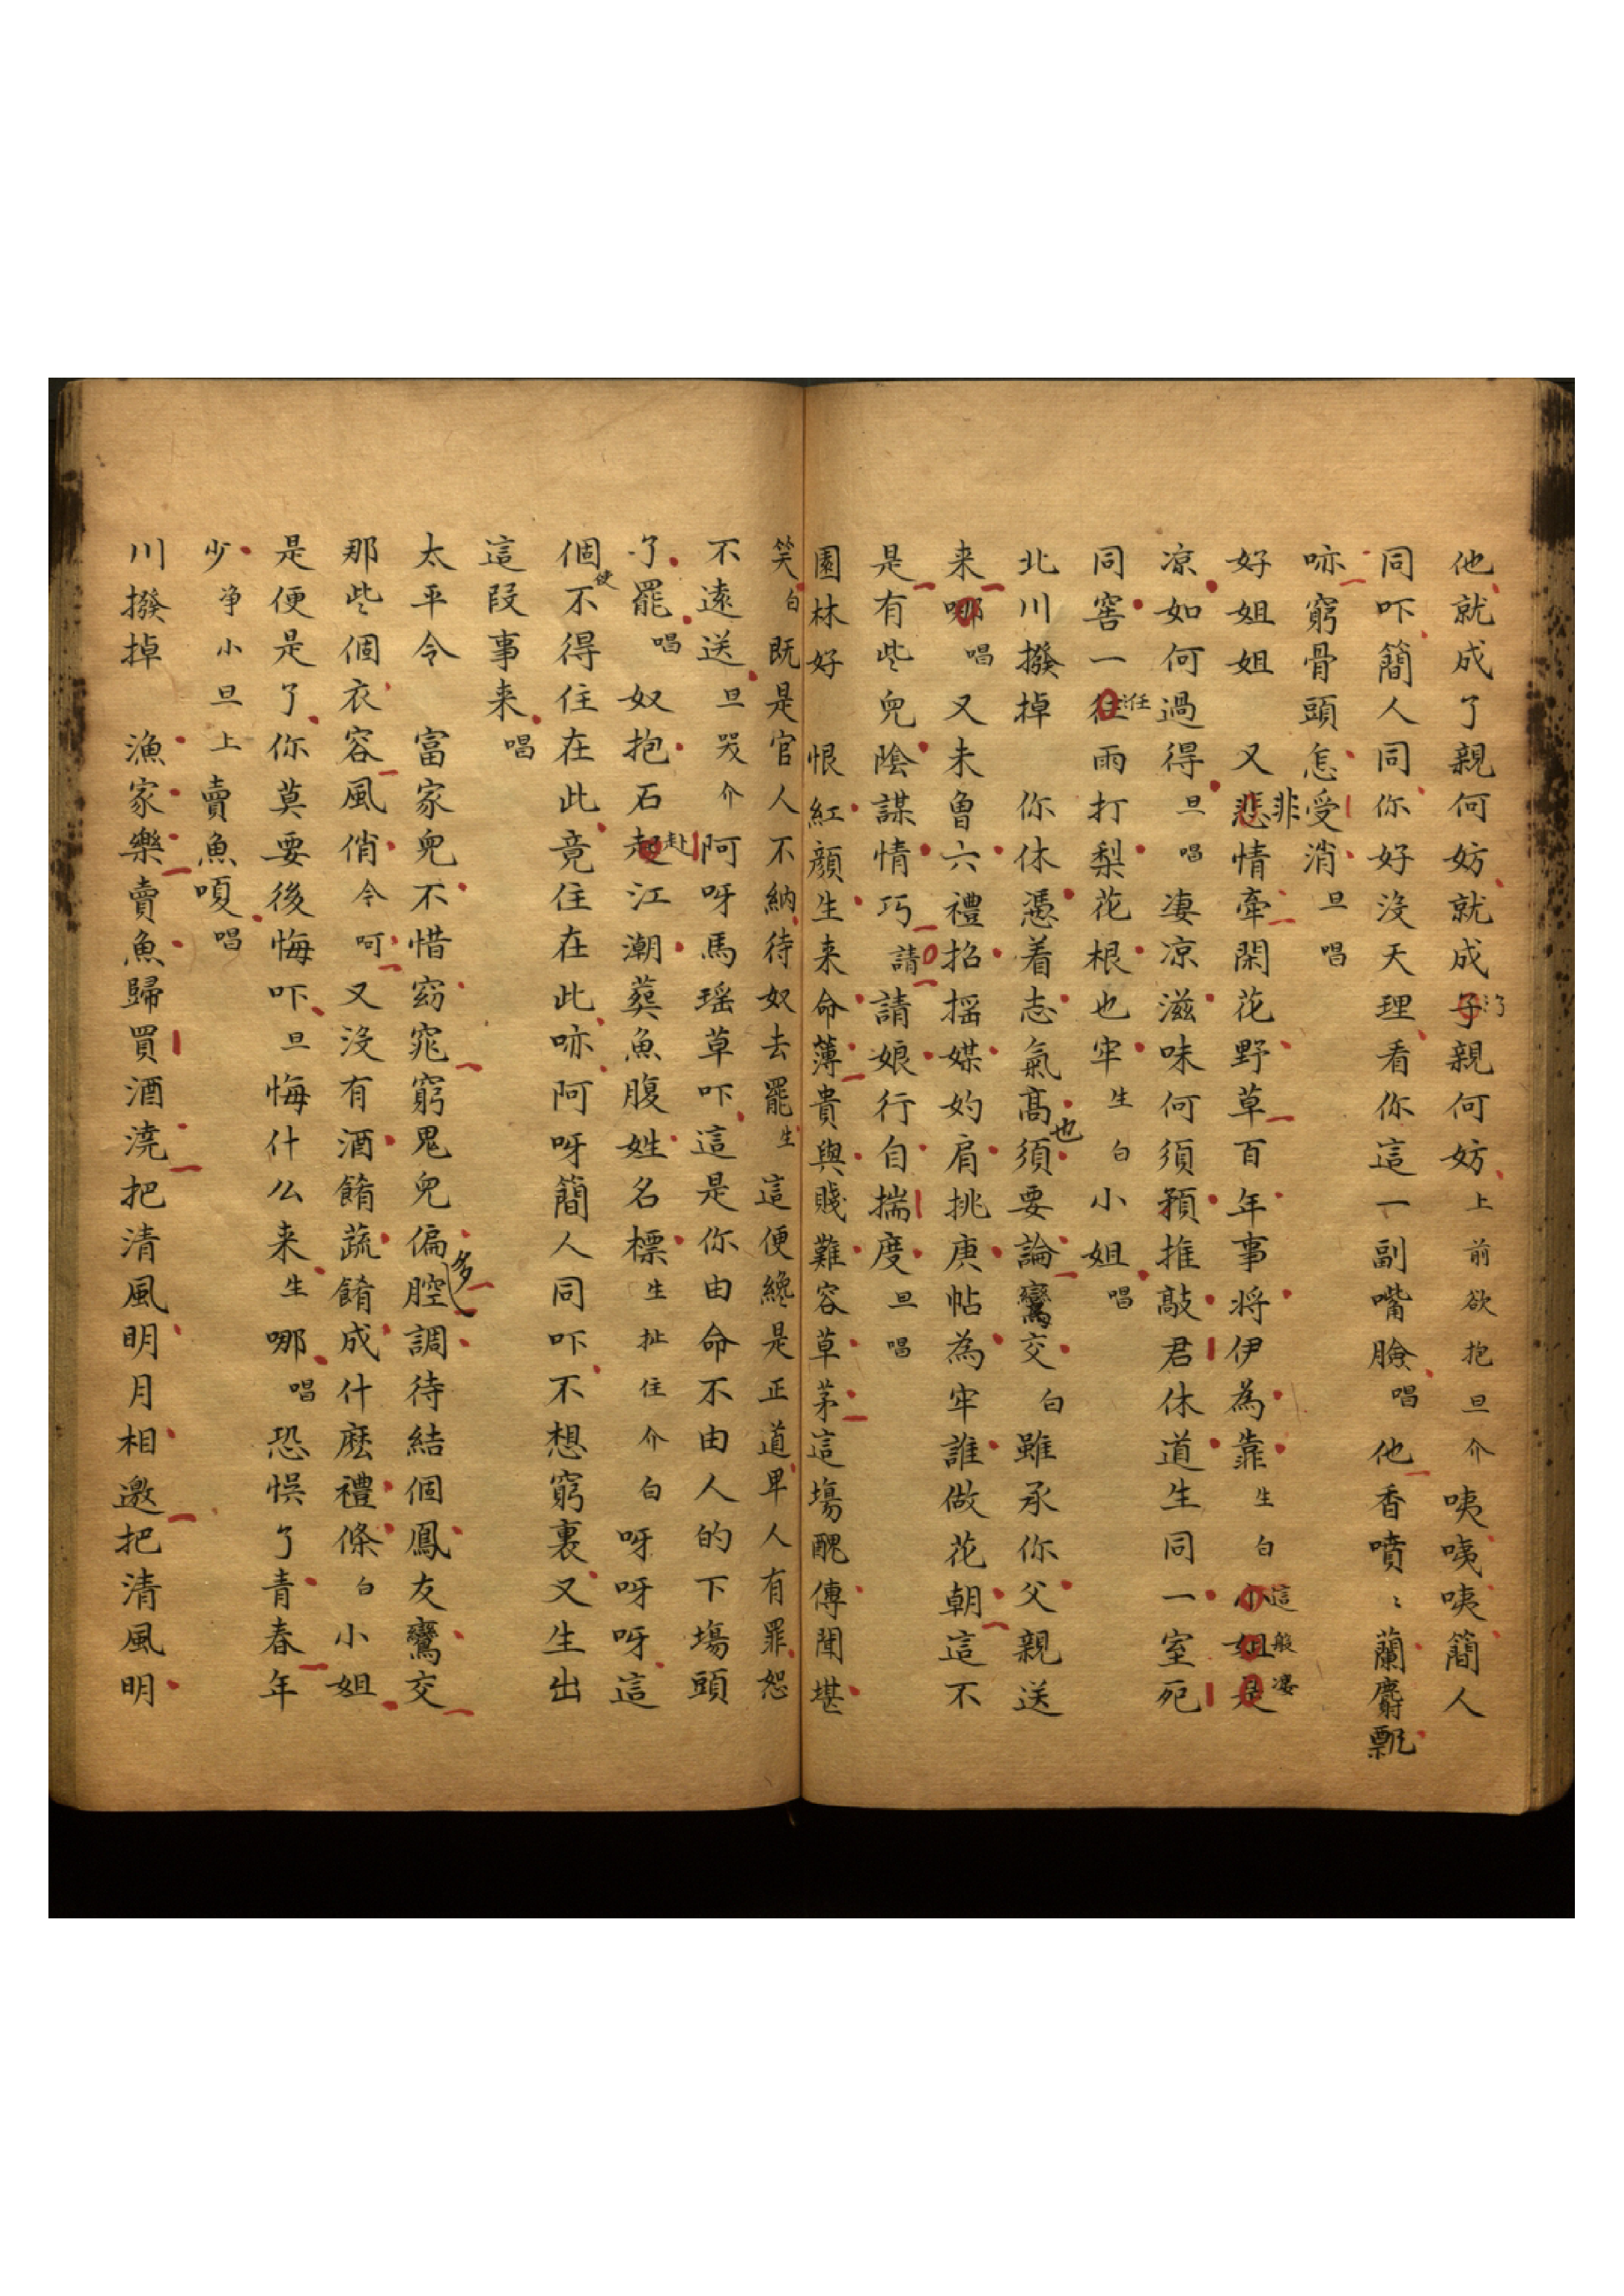 他就成了親何妨就成了親何妨上前欲抱旦介咦咦咦簡人
同吓簡人同你好沒天理看你這一副嘴臉唱他香噴〻蘭麝飄
㖡窮骨頭怎受消旦唱
好姐姐 又非情牽閑花野草百年事将伊為靠生白這般凄
凉如何過得旦唱凄凉滋味何須預推敲君休道生同一室死
同窖一任雨打梨花根也牢生白小姐唱
北川撥掉 你休憑着志氣高也須要論鸞交白雖承你父親送
来唱又未曾六禮招摇媒妁肩挑庚帖為牢誰做花朝這不
是有些兒陰謀情巧請請娘行自揣度旦唱
園林好 恨紅顔生来命薄貴與賤難容草茅這塲醜傳聞堪
笑白既是官人不納待奴去罷生這便纔是正道卑人有罪恕
不遠送旦哭介阿呀馬瑶草吓這是你由命不由人的下塲頭
了罷唱奴抱石赴江潮葬魚腹姓名標生扯住介白呀呀呀這
個使不得住在此竟住在此㖡阿呀簡人同吓不想窮裏又生出
這段事来唱
太平令 富家兒不惜窈窕窮鬼兒偏多腔調待結個鳳友鸞交
那些個衣容風俏令呵又沒有酒餚蔬餚成什麽禮條白小姐
是便是了你莫要後悔吓旦悔什么来生哪唱恐悞了青春年
少净小旦上賣魚嗄唱
川撥掉 漁家樂賣魚歸買酒澆把清風明月相邀把清風明